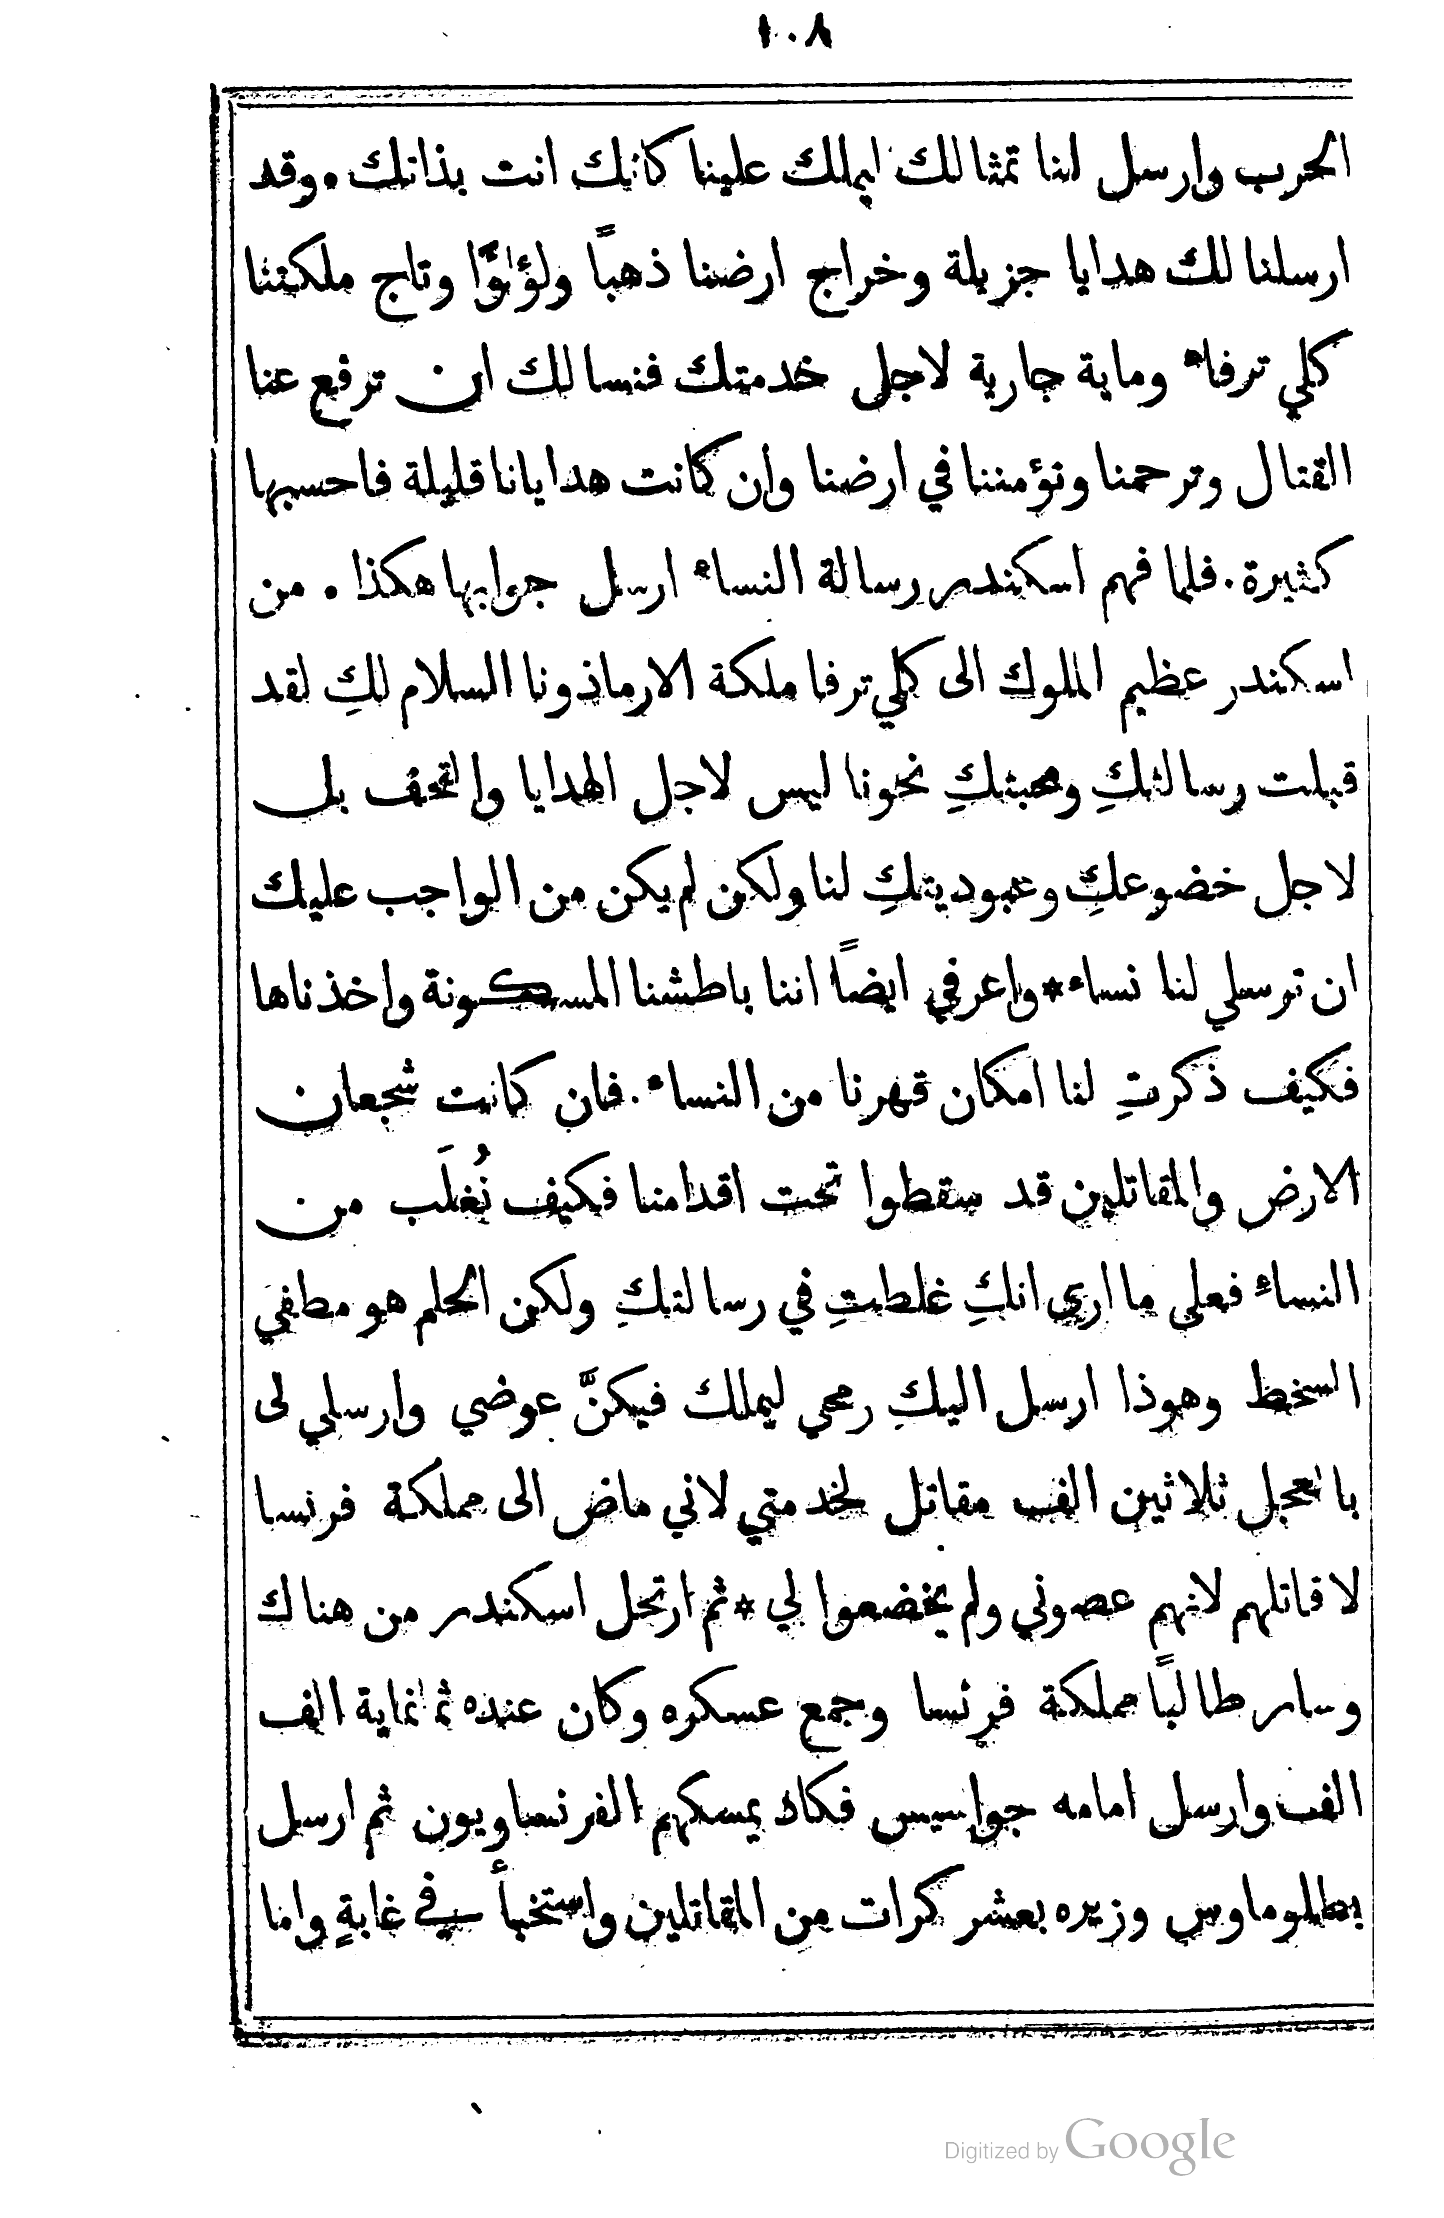 ١٠٨
الحرب وارسل لنا تمثالك ليملك علينا كانك انت بذاتك ٠ وقد
ارسلنا لك هدايا جزيلة وخراج ارضنا ذهباً ولؤلؤًا وتاج ملكتنا
كلي ترفاء وماية جارية لاجل خدمتك فنسالك ان ترفع عنا
القتال وترحمنا وتؤمننا في ارضنا وان كانت هدايانا قليلة فاحسبها
كثيرة ٠ فلما فهم اسكندر رسالة النساء ارسل جوابها هكذا ٠ من
اسكندر عظيم الملوك الى كلي ترفا ملكة الارماذونا السلام لكِ لقد
قبلت رسالتكِ ومحبتكِ نحونا ليس لاجل الهدايا والتحف بل
لاجل خضوعكِ وعبوديتكِ لنا ولكن لم يكن من الواجب عليك
ان ترسلي لنا نساء * واعرفي ايضاً اننا باطشنا المسكونة واخذناها
فكيف ذكرتِ لنا امكان قهرنا من النساء ٠ فان كانت شجعان
الارض والمقاتلين قد سقطوا تحت اقدامنا فكيف نُغلَب من
النساء فعلى ما ارى انكِ غلطتِ في رسالتكِ ولكن الحلم هو مطفي
السخط وهوذا ارسل اليكِ رمحي ليملك فيكنَّ عوضي وارسلي لى
بالعجل ثلاثين الف مقاتل لخدمتي لاني ماض الى مملكة فرنسا
لاقاتلهم لانهم عصوني ولم يخضعوا لي * ثم ارتحل اسكندر من هناك
وسار طالبًا مملكة فرنسا وجمع عسكره وكان عنده ثمانماية الف
الف وارسل امامه جواسيس فكاد يمسكهم الفرنساويون ثم ارسل
بطلوماوس وزيره بعشر كرات من المقاتلين واستخبأ في غابةٍ واما
Digitized by Google